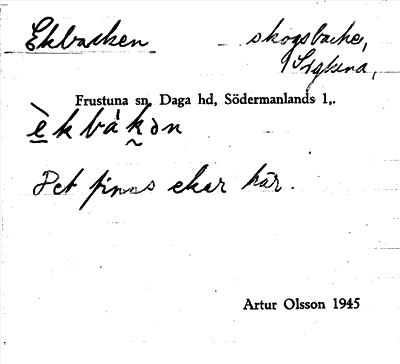 Ekbacken skogsbacke,
Sigkina,
Frustuna sn, Daga hd, Södermanlands l,.
è̲kbák̰ən
Det finns ekar här.
Artur Olsson 1945